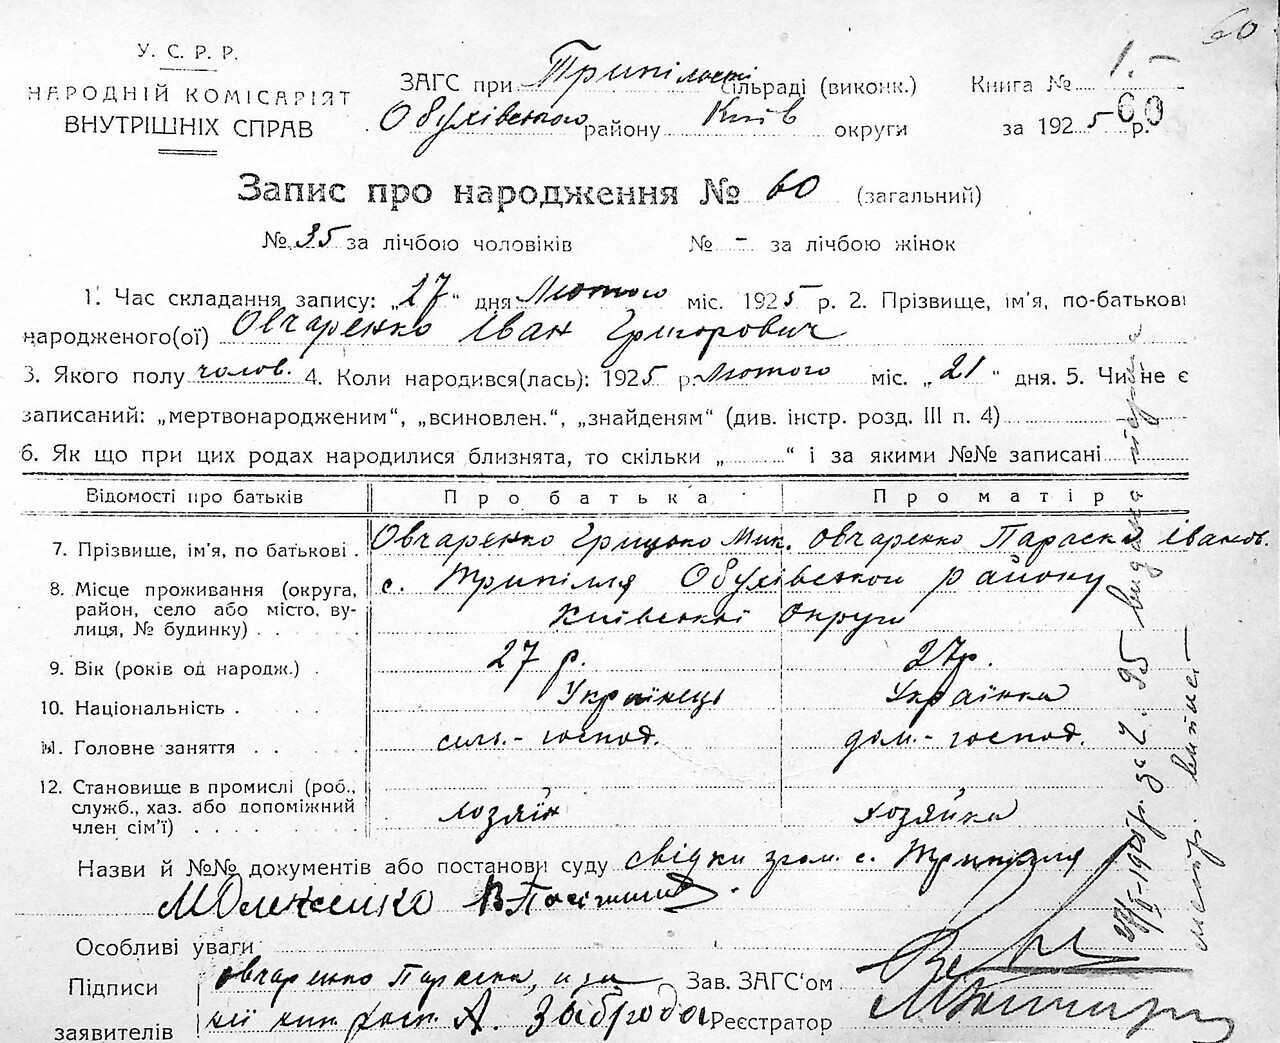 60
У. С. Р. Р.
НАРОДНІЙ КОМІСАРІЯТ
ВНУТРІШНІХ СПРАВ
ЗАГС при Трипільскі сільраді (виконк.) Книга № 1.-
Обухівського району Київ округи за 1925 р. 60
Запис про народження № 60 (загальний)
№ 35 за лічбою чоловіків № - за лічбою жінок
1. Час складання запису: „27“ дня Лютого міс. 1925 р. 2. Прізвище, ім'я, по-батькові
народженого(ої) Овчаренко Іван Григорович
3. Якого полу чолов. 4. Коли народився(лась): 1925 р. Лютого міс. „21“ дня. 5. Чи не є
записаний: „мертвонародженим“, „всиновлен.“, „знайденям“ (див. інстр. розд. III п. 4)
6. Як що при цих родах народилися близнята, то скільки „ “ і за якими №№ записані
Відомості про батьків Про батька Про матір
7. Прізвище, ім'я, по батькові . Овчаренко Грицько Мик. Овчаренко Параска Іванов.
8. Місце проживання (округа, с. Трипілля Обухівського району
район, село або місто, ву- Київської Округи
лиця, № будинку)
9. Вік (років од народж.) . 27 р. 27 р.
10. Національність . Українець Українка
11. Головне заняття . сіль.-господ. дом.-господ.
12. Становище в промислі (роб.,
служб., хаз. або допоміжний хозяїн хозяйка
член сім'ї)
Назви й №№ документів або постанови суду свідки гром. с. Трипілля
Особливі уваги
Підписи Овчаренко Параска, Зав. ЗАГС'ом
заявителів А. Заброда Реєстратор
видана
метр. витяг